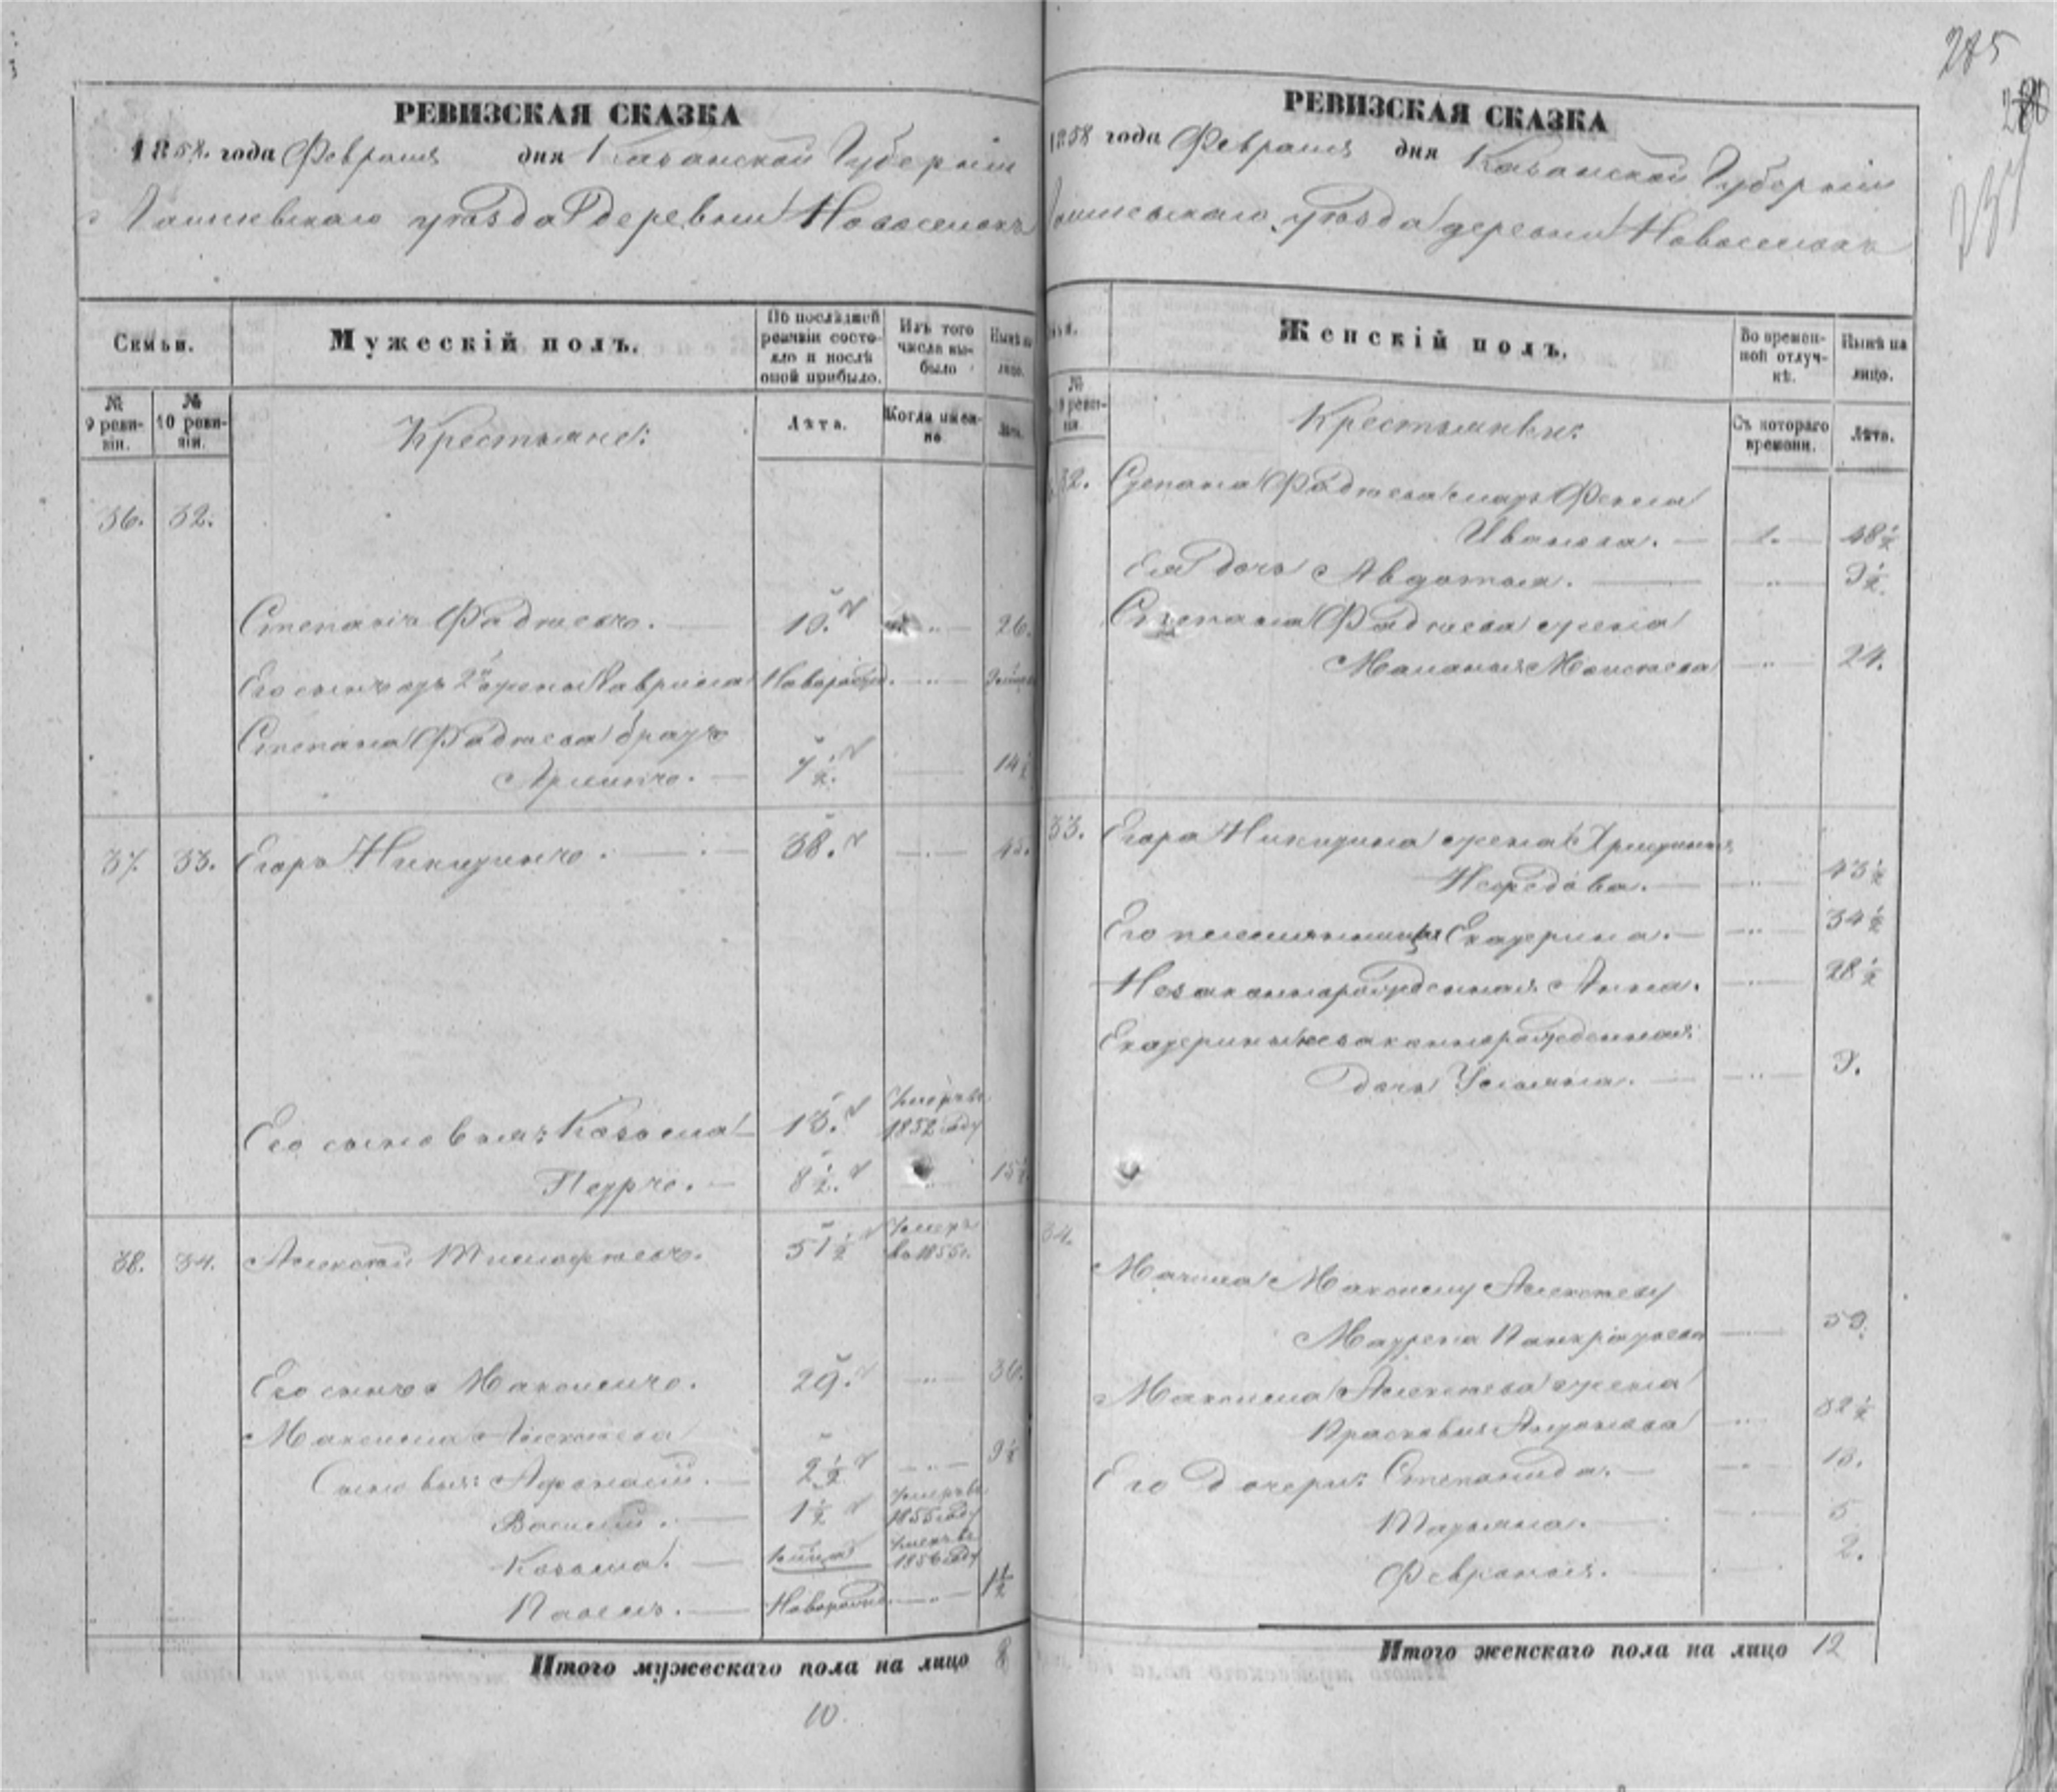 285
РЕВИЗСКАЯ СКАЗКА
1858 года Февраля дня Казанской Губернiи
Лаишевскаго уѣзда деревни Новоселокъ
Семьи.
Мужескiй полъ.
По послѣдней ревизiи состояло и послѣ оной прибыло.
Изъ того числа выбыло
Нынѣ на лицо.
№ 9 ревизiи.
№ 10 ревизiи.
Крестьяне:
Лѣта.
Когда именно
Лѣта.
36. 32.
Степанъ Фадѣевъ. 19. 26.
Его сынъ отъ 2й жены Гаврила Новорожд.
Степана Фадѣева братъ
7½. 14½
37. 33. Егоръ Никитинъ. 38. 45.
Его сыновья: Козьма 13. Умеръ въ 1852 году
Петръ. 8½. 15½
38. 34. Алексѣй Тимофѣевъ. 51½ Умеръ въ 1855г.
Его сынъ Максимъ. 29. 36.
Максима Алексѣева
Сыновья: Афонасiй. 2½ 9½
Василiй. 1½ Умеръ въ 1855 году
Козьма. Умеръ въ 1856 году
Павелъ. Новорожд. 1½
Итого мужескаго пола на лицо 8
10
РЕВИЗСКАЯ СКАЗКА
1858 года Февраля дня Казанской Губернiи
Лаишевскаго уѣзда деревни Новоселокъ
Женскiй полъ.
Во временной отлучкѣ.
Нынѣ на лицо.
№ 9 ревизiи.
Крестьянки:
Съ котораго времени.
Лѣта.
32. Степана Фадѣева мать Фекла
Иванова. 48½
Ея дочь Авдотья. 9½.
Степана Фадѣева жена
Маланья Моисѣева 24.
33. Егора Никитина жена Христинья
Нефедова. 43½
Его племянница Екатерина. 34½
Незаконнорожденная Анна. 28½
Екатерины незаконнорожденная
дочь Ульяна. 9.
34.
Мачиха Максиму Алексѣеву
Матрена Панкратьева 59.
Максима Алексѣева жена
Прасковья Антонова 32½
Его дочери: Степанида. 13.
Татьяна. 5
Февронья. 2.
Итого женскаго пола на лицо 12